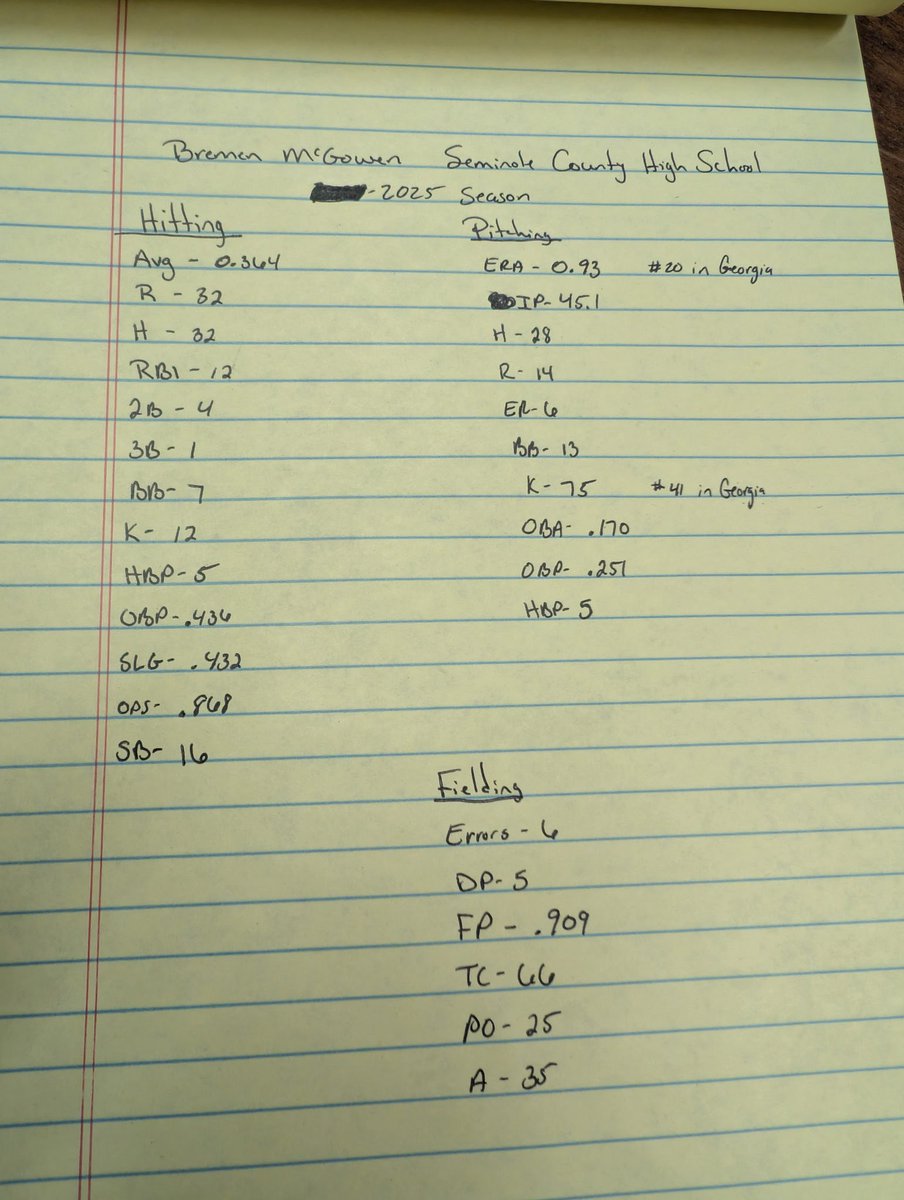 Bremen McGowen Seminole County High School
-2025 Season
Hitting
Avg - 0.364
R - 32
H - 32
RBI - 12
2B - 4
3B - 1
BB- 7
K- 12
HBP- 5
OBP-.436
SLG- .432
OPS- .868
SB- 16
Pitching
ERA - 0.93 #20 in Georgia
IP- 45.1
H - 28
R- 14
ER- 6
BB- 13
K- 75 #41 in Georgia
OBA- .170
OBP- .251
HBP- 5
Fielding
Errors - 6
DP- 5
FP - .909
TC- 66
PO- 25
A - 35